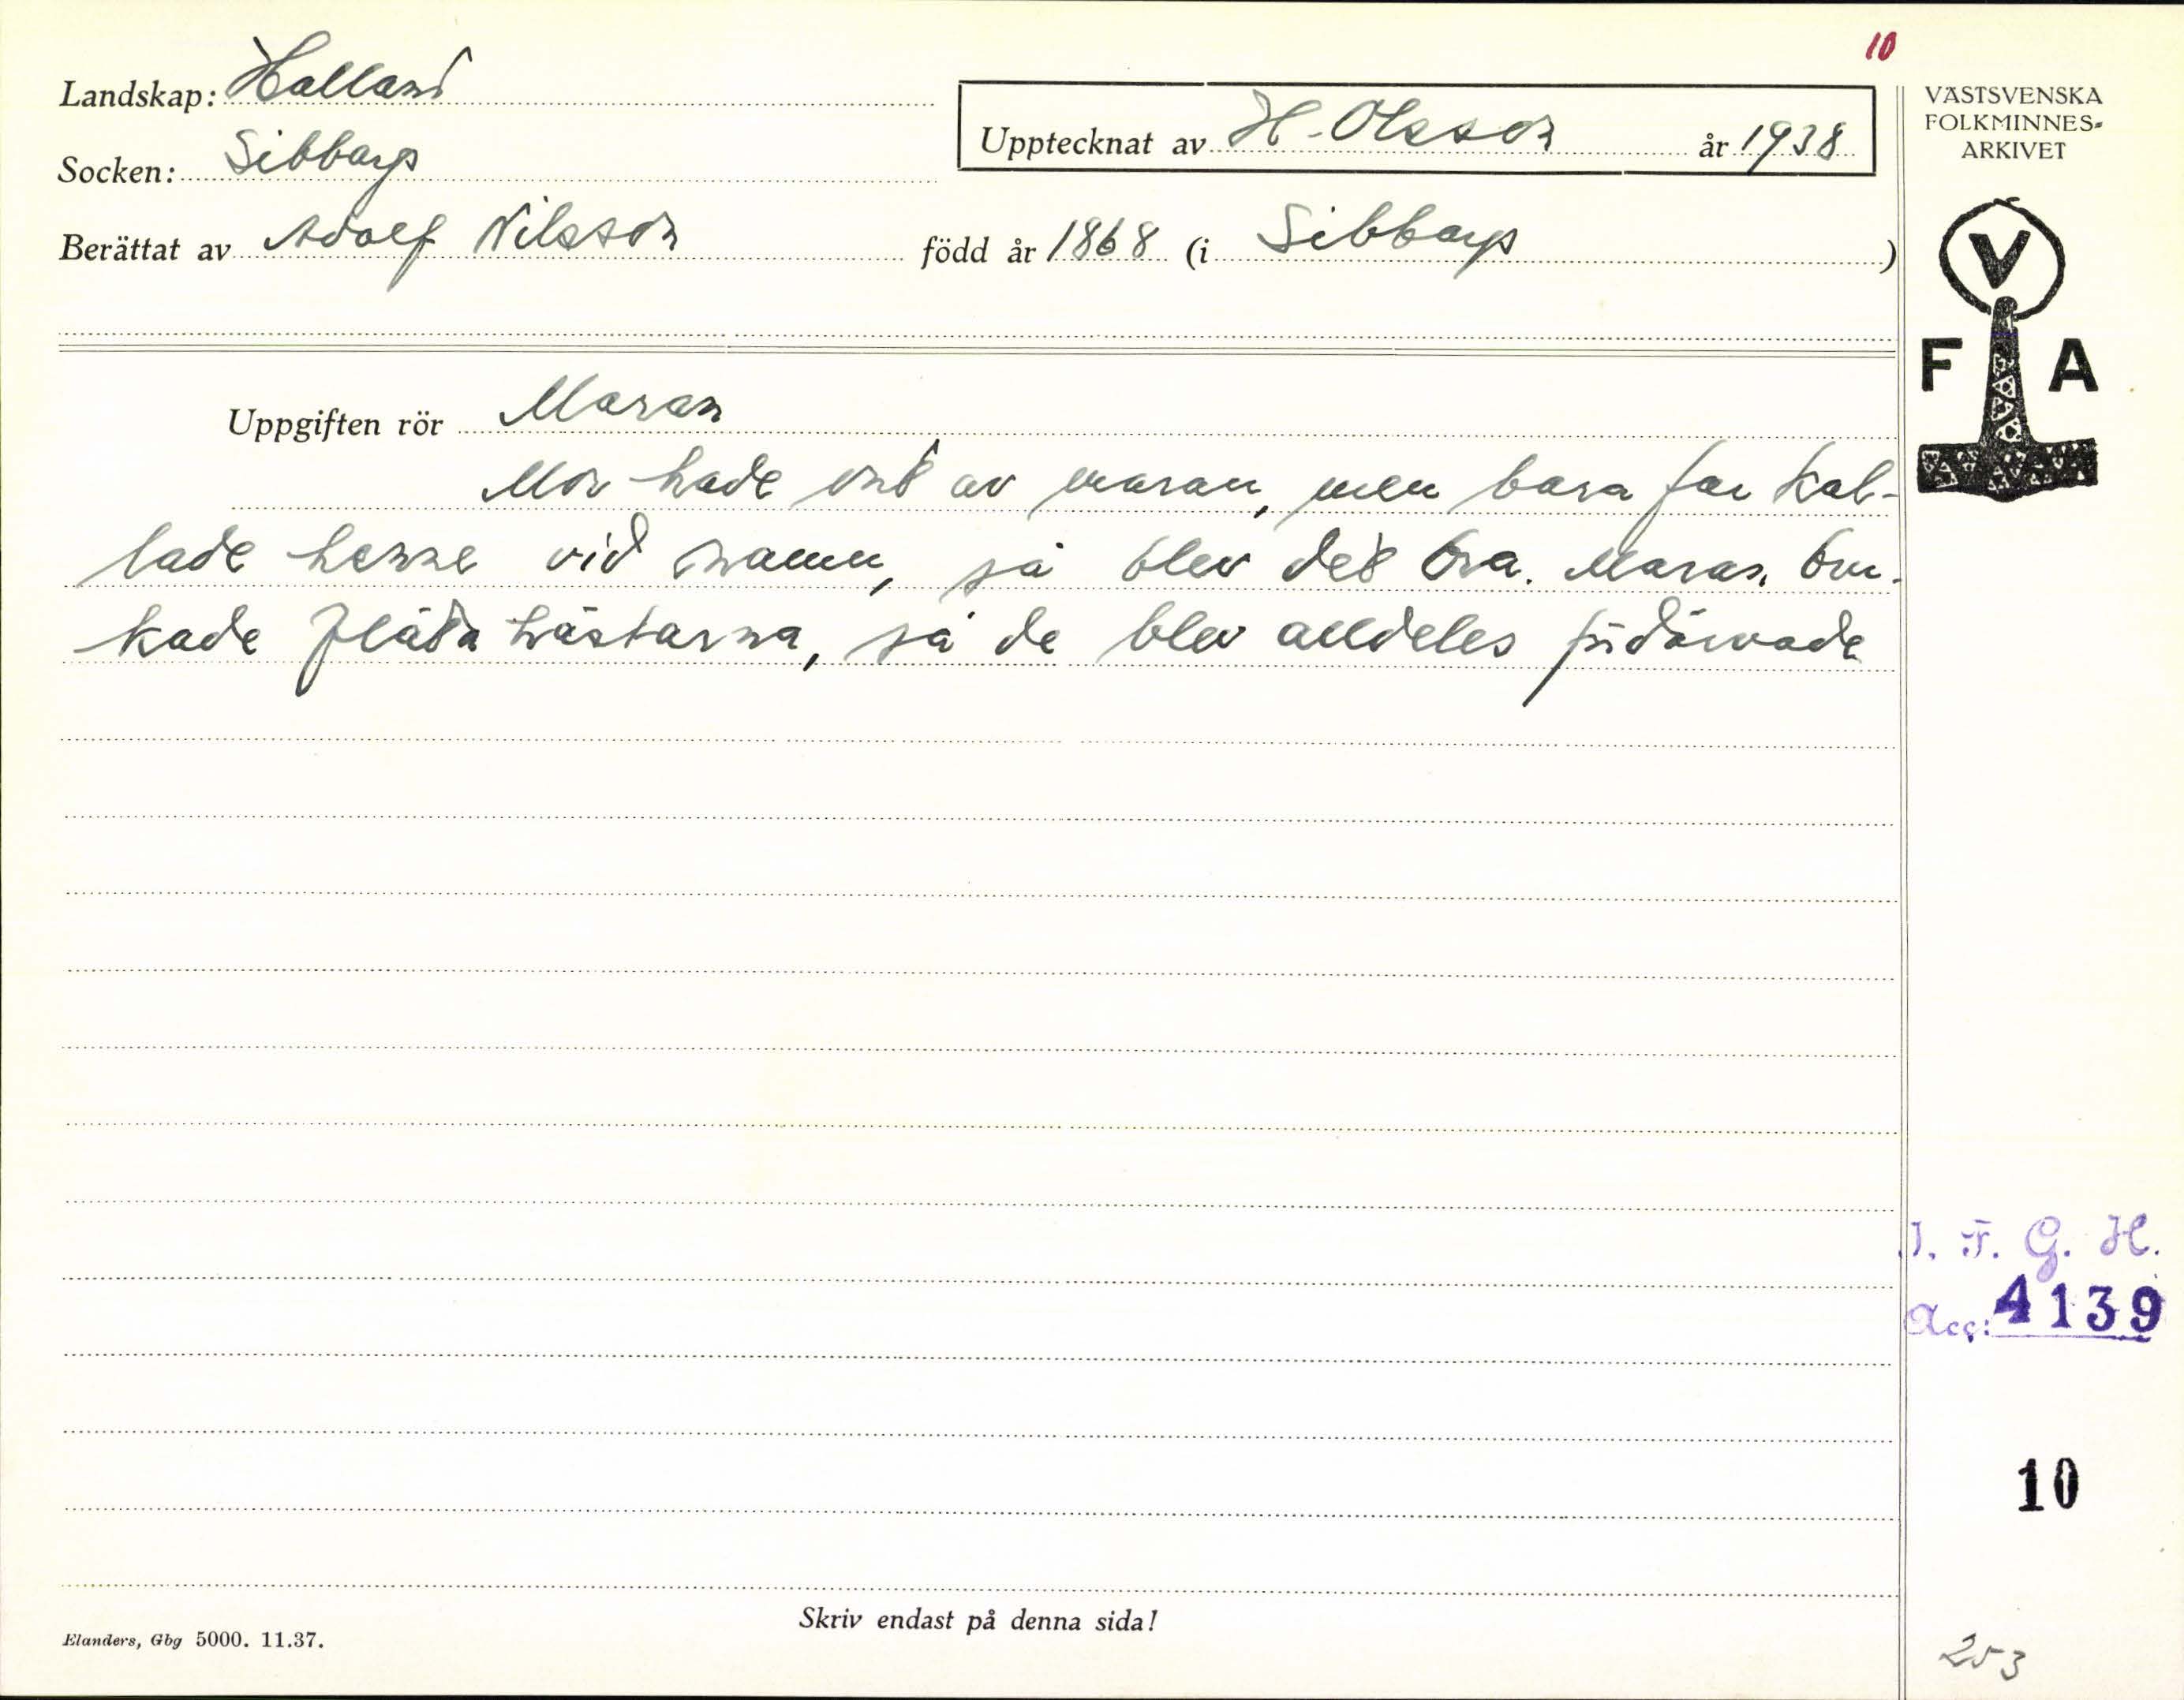 10
Landskap: Halland
Socken: Sibbarp
Upptecknat av H. Olsson år 1938
Berättat av Adolf Nilsson född år 1868 (i Sibbarp)
VÄSTSVENSKA
FOLKMINNES-
ARKIVET
V
F A
Uppgiften rör Maran
Mor hade ont av maran, men bara far kal-
lade henne vid namn, så blev det bra. Maran bru-
kade fläta hästarna, så de blev alldeles fördärvade
I. F. G. H.
Acc: 4139
10
Skriv endast på denna sida!
Elanders, Gbg 5000. 11.37.
253